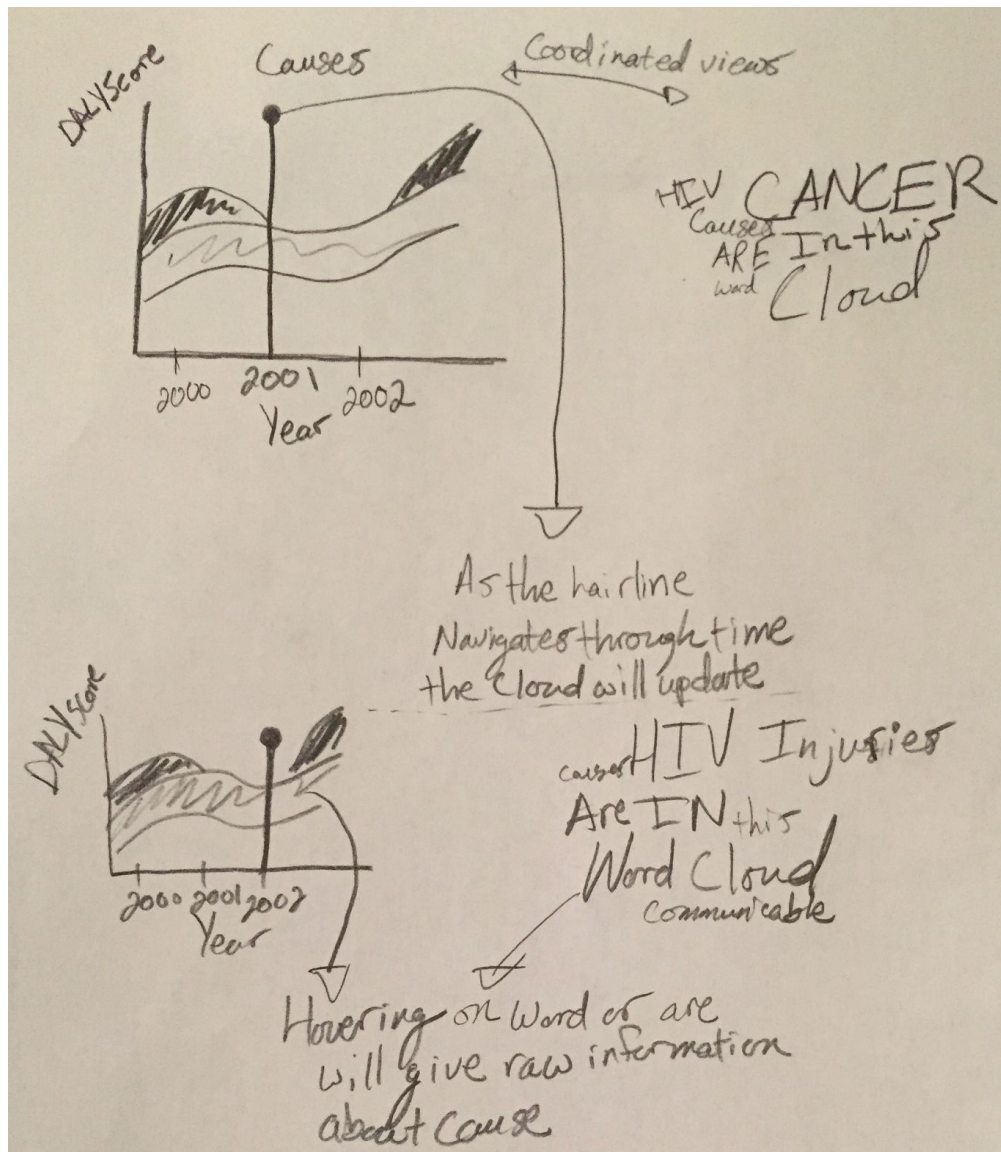 Causes
Coordinated views
DALYScore
HIV CANCER
Causes
ARE In this
word Cloud
2000 2001 2002
Year
As the hairline
Navigates through time
the Cloud will update
DALYScore
causes HIV Injuries
Are IN this
Word Cloud
communicable
2000 2001 2002
Year
Hovering on word or are
will give raw information
about cause